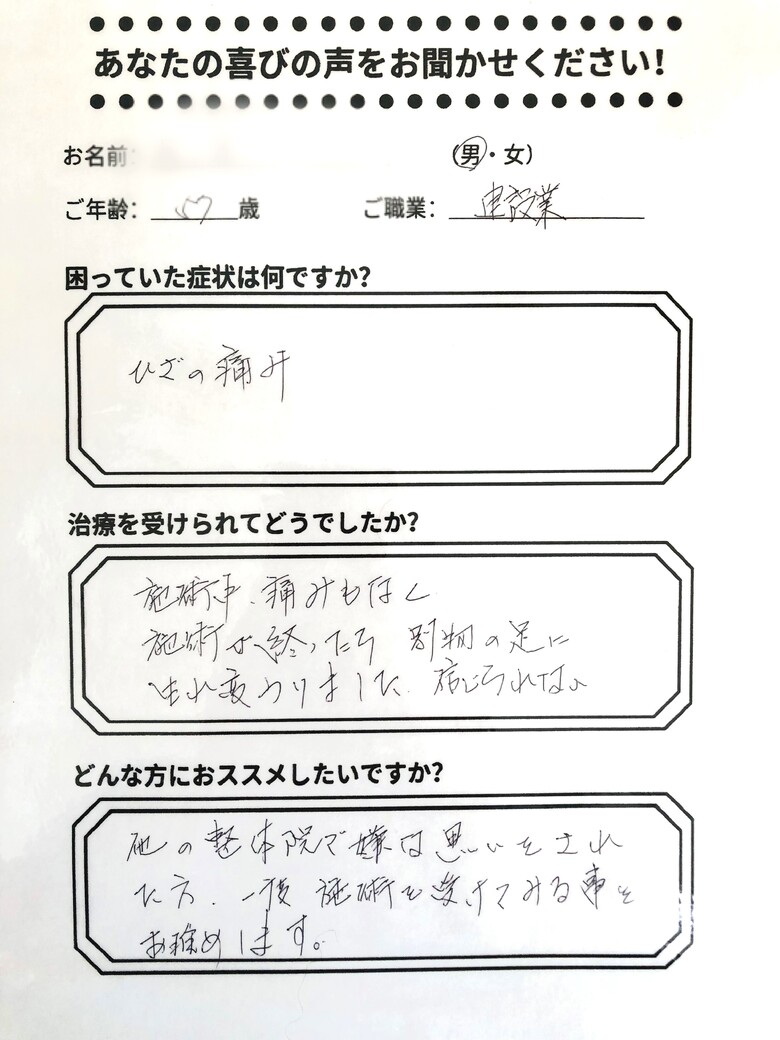 あなたの喜びの声をお聞かせください!
お名前:
(男・女)
ご年齢: 歳 ご職業: 建設業
困っていた症状は何ですか?
ひざの痛み
治療を受けられてどうでしたか?
施術中、痛みもなく
施術が終ったら 別物の足に
生れ変わりました。信じられない
どんな方におススメしたいですか?
他の整体院で嫌な思いをされ
た方、一度施術を受けてみる事を
お勧めします。